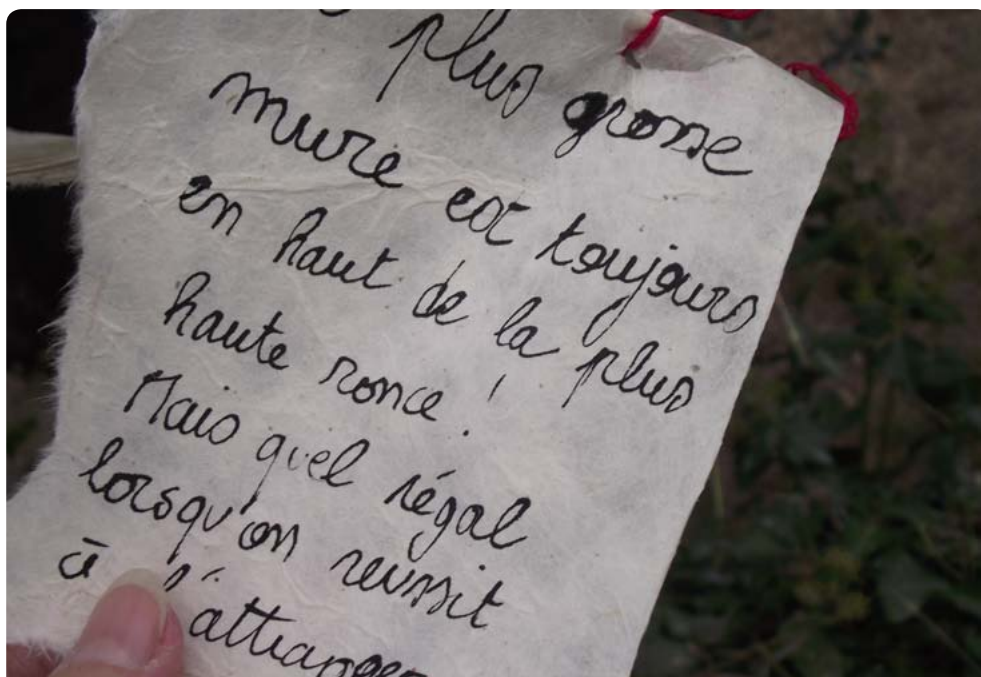 plus grosse
mure est toujours
en haut de la plus
haute ronce !
Mais quel régal
lorsqu'on reussit
à l'attraper